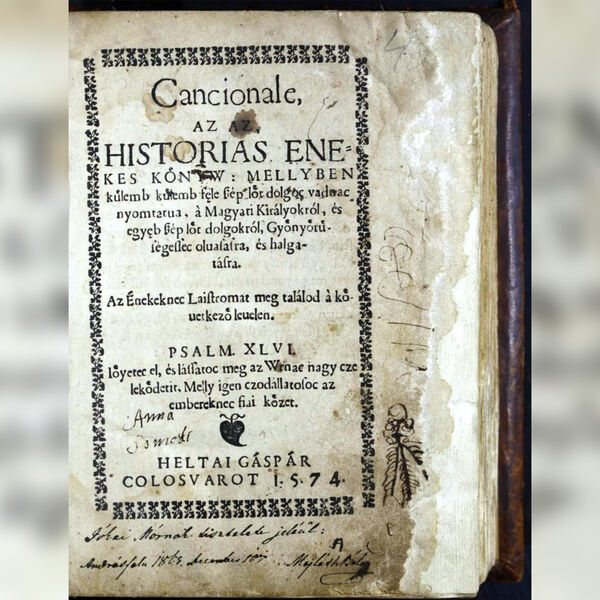 Cancionale,
AZ AZ,
HISTORIAS ENE-
KES KŐNYW: MELLYBEN
kůlemb kůlemb féle ßép lőt dolgoc vadnac
nyomtatua, à Magyari Királyokról, és
egyéb ßép lőt dolgokról, Gyŏnyŏrů-
ségesſec oluaſaſra, és halga-
táſra.
Az Énekeknec Laiſtromat meg találod à kŏ-
uetkezŏ leuelen.
PSALM. XLVI.
Iŏyetec el, és láſſatoc meg az Wrnac nagy cze
lekŏdetit. Melly igen czodállatoſoc az
embereknec fiai kŏzŏt.
Anna
HELTAI GÁSPÁR
COLOSVAROT 1.5.74.
Jókai Mórnak tisztelete jeléül:
Andrásfalu 1863. december 10én Majláth Béla